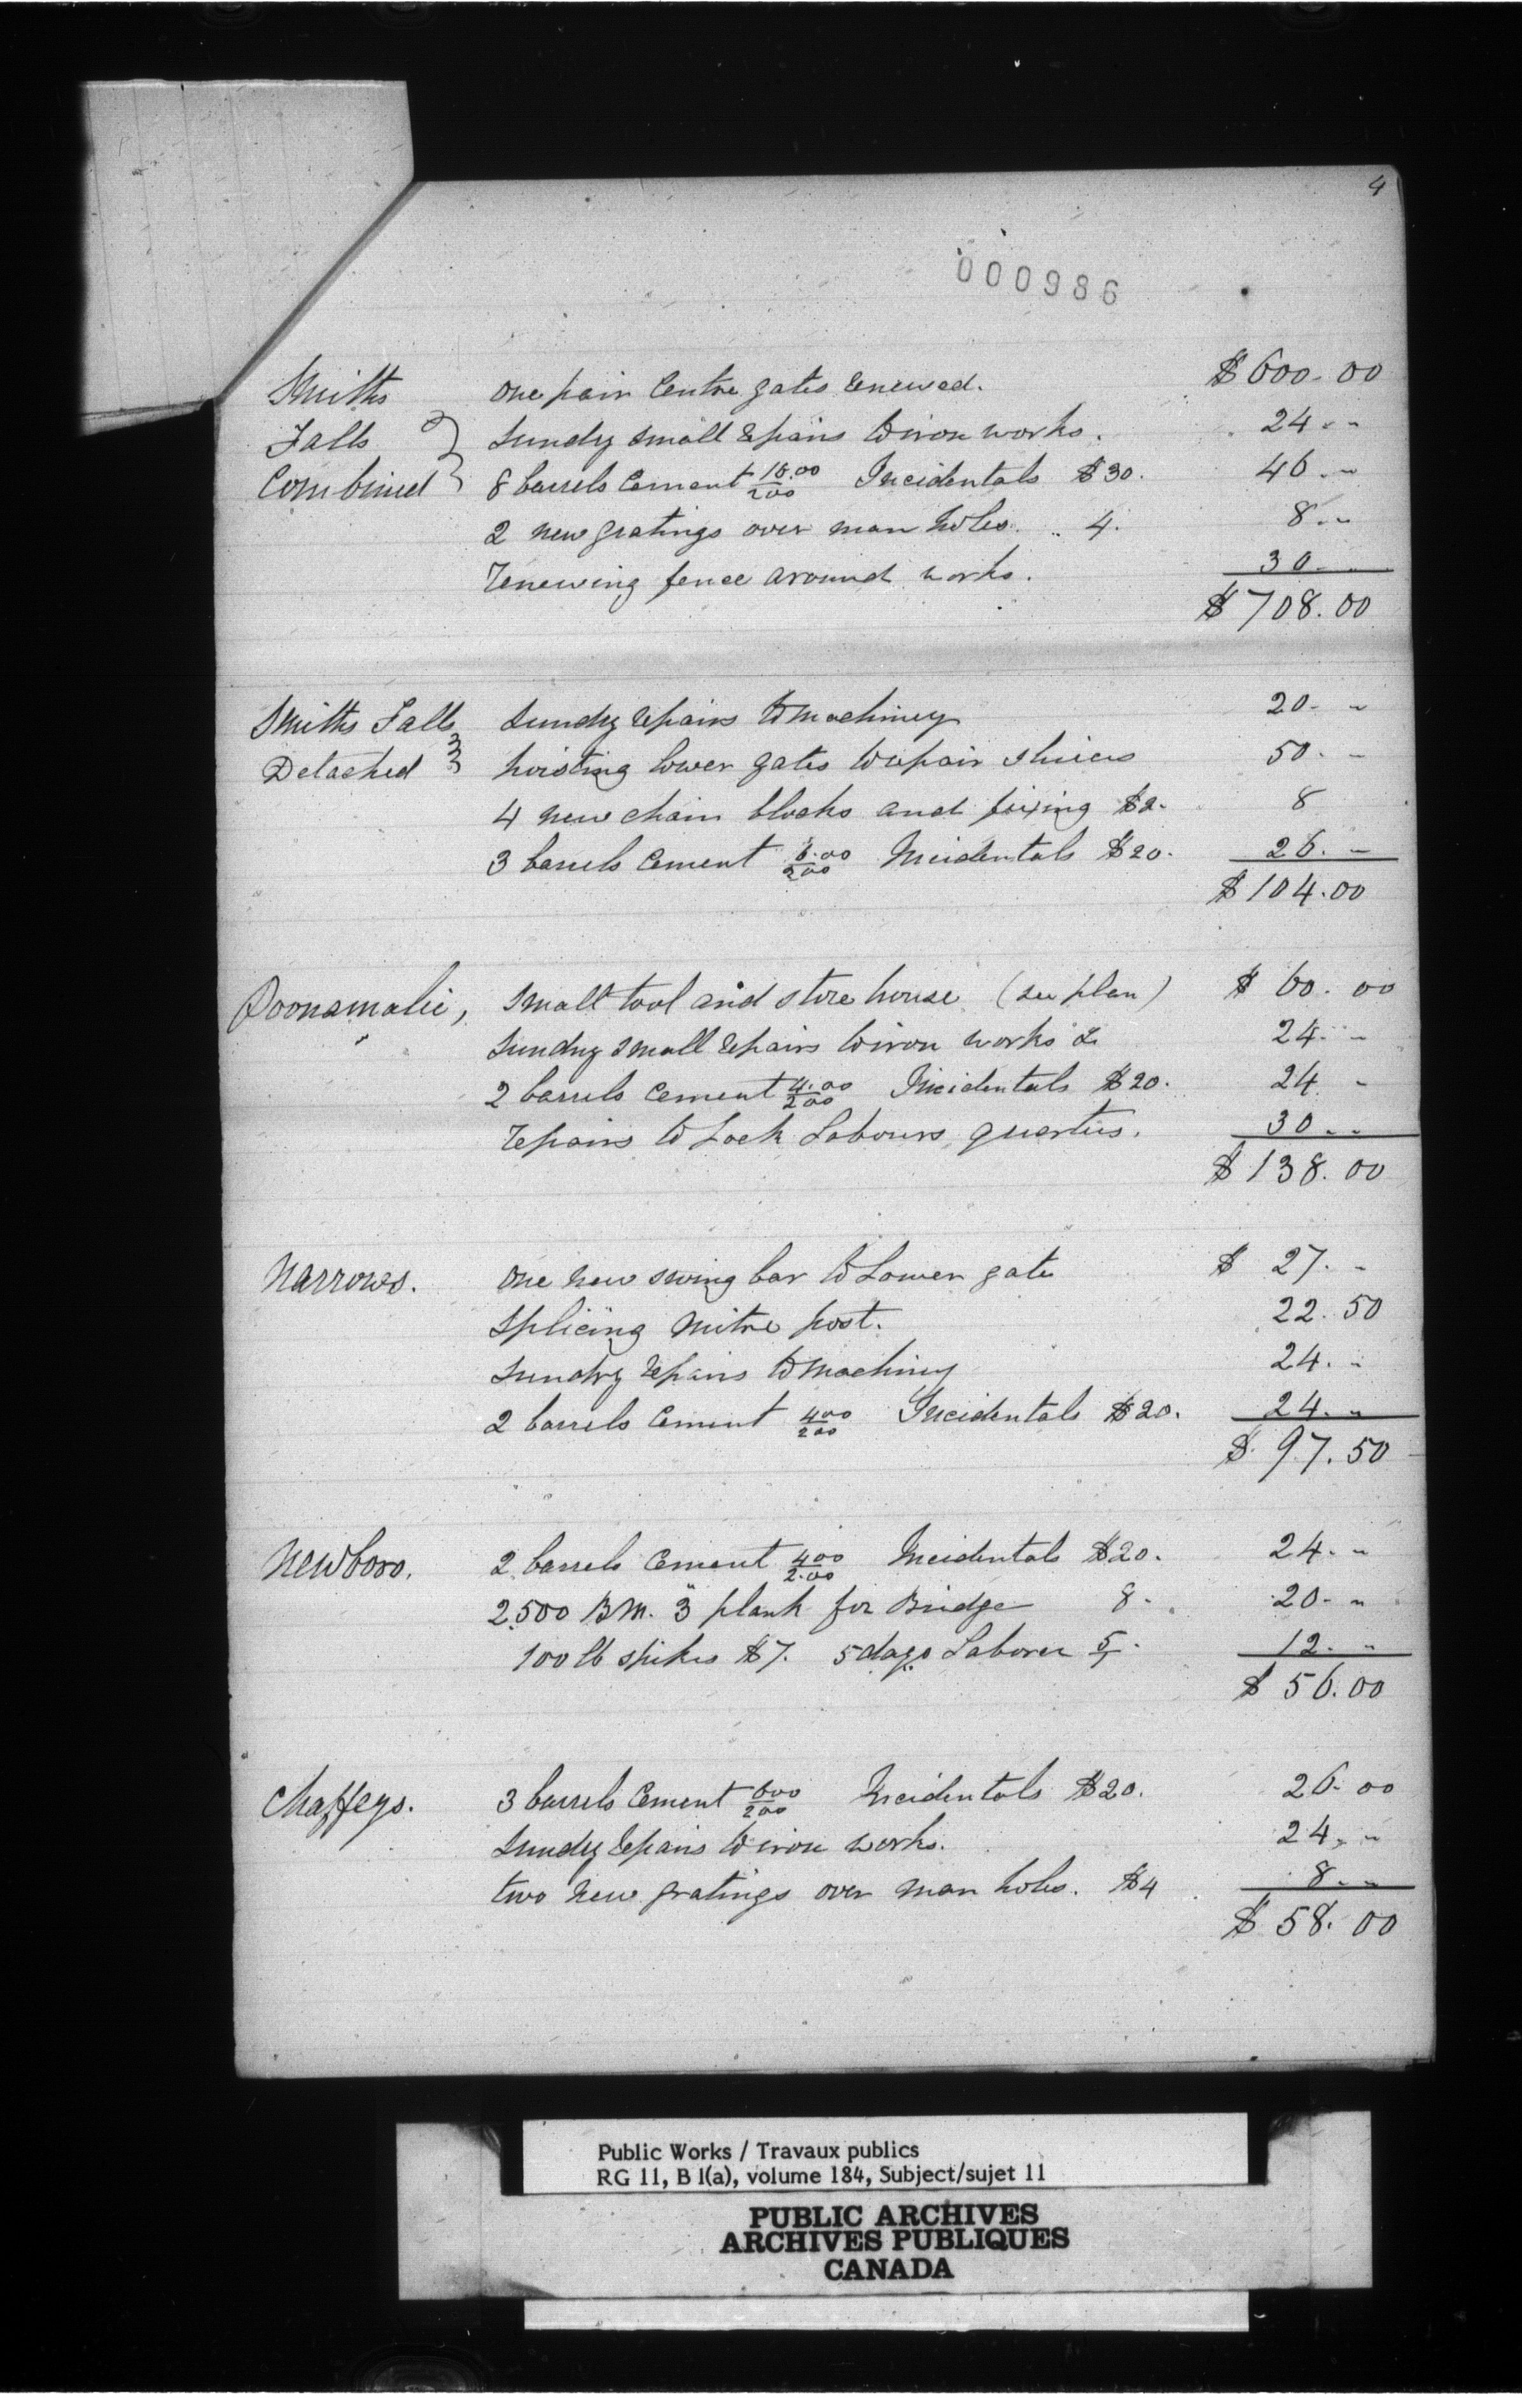 4
000986
Smiths one pair Centre gates renewed. $600.00
Falls } Sundry small repairs to iron works. 24 " "
Combined } 8 barrels Cement 16.00/2.00 Incidentals $30. 46 "
2 new gratings over man holes. " 4. 8 " "
renewing fence around works. 30 "
$708.00
Smiths Falls } Sundry repairs to machinery 20 "
Detached } hoisting lower gates to repair sluices 50 "
4 new chain blocks and fixing $2. 8
3 barrels Cement 6.00/2.00 Incidentals $20. 26. "
$104.00
Poonamalie, Small tool and store house (see plan) $60.00
Sundry small repairs to iron works & 24 "
2 barrels Cement 4.00/2.00 Incidentals $20. 24 "
repairs to Lock Labours quarters. 30 " "
$138.00
Narrows. One new swing bar to Lower gate $27. "
Splicing mitre post. 22.50
Sundry repairs to machiny 24. "
2 barrels Cement 4.00/2.00 Incidentals $20. 24. "
$97.50
Newboro. 2 barrels Cement 4.00/2.00 Incidentals $20. 24. "
2500 B.M. 3" plank for Bridge 8. 20. "
100 lb spikes $7. 5 days Laborer 5. 12. "
$56.00
Chaffeys. 3 barrels Cement 6.00/2.00 Incidentals $20. 26.00
Sundry repairs to iron works. 24. "
two new gratings over man holes. $4 8. "
$58.00
Public Works / Travaux publics
RG 11, B 1(a), volume 184, Subject/sujet 11
PUBLIC ARCHIVES
ARCHIVES PUBLIQUES
CANADA